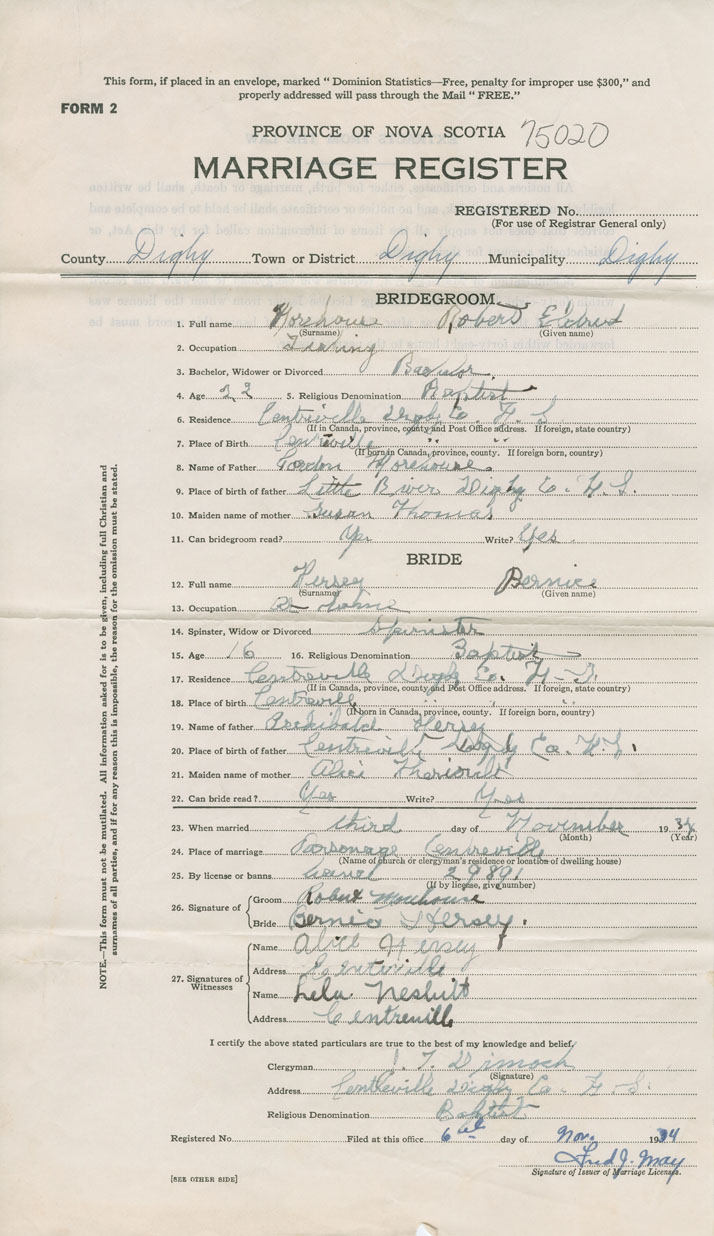 This form, if placed in an envelope, marked “ Dominion Statistics—Free, penalty for improper use $300,” and
properly addressed will pass through the Mail “ FREE.”
FORM 2
PROVINCE OF NOVA SCOTIA 75020
MARRIAGE REGISTER
REGISTERED No.
(For use of Registrar General only)
County Digby Town or District Digby Municipality Digby
BRIDEGROOM
1. Full name Morehouse Robert Eldred
(Surname) (Given name)
2. Occupation Fishing
3. Bachelor, Widower or Divorced Bachelor
4. Age 22 5. Religious Denomination Baptist
6. Residence Centreville Digby Co. N. S.
(If in Canada, province, county and Post Office address. If foreign, state country)
7. Place of Birth Centreville " "
(If born in Canada, province, county. If foreign born, country)
8. Name of Father Gordon Morehouse
9. Place of birth of father Little River Digby Co. N. S.
10. Maiden name of mother Susan Thomas
11. Can bridegroom read? Yes Write? Yes
BRIDE
12. Full name Hersey Bernice
(Surname) (Given name)
13. Occupation at home
14. Spinster, Widow or Divorced Spinster
15. Age 16 16. Religious Denomination Baptist
17. Residence Centreville Digby Co. N. S.
(If in Canada, province, county and Post Office address. If foreign, state country)
18. Place of birth Centreville " "
(If born in Canada, province, county. If foreign born, country)
19. Name of father Archibald Hersey
20. Place of birth of father Centreville Digby Co. N. S.
21. Maiden name of mother Alice Theriault
22. Can bride read? Yes Write? Yes
23. When married third day of November 1934
(Month) (Year)
24. Place of marriage Parsonage Centreville
(Name of church or clergyman's residence or location of dwelling house)
25. By license or banns 29891
(If by license, give number)
26. Signature of
Groom Robert Morehouse
Bride Bernice Hersey
27. Signatures of Witnesses
Name Alice Hersey
Address Centreville
Name Lela Nesbitt
Address Centreville
I certify the above stated particulars are true to the best of my knowledge and belief.
Clergyman T. Dimock
(Signature)
Address Centreville Digby Co. N. S.
Religious Denomination Baptist
Registered No. Filed at this office 6th day of Nov. 1934
Fred J. May
Signature of Issuer of Marriage Licenses.
[SEE OTHER SIDE]
NOTE.—This form must not be mutilated. All information asked for is to be given, including full Christian and
surnames of all parties, and if for any reason this is impossible, the reason for the omission must be stated.